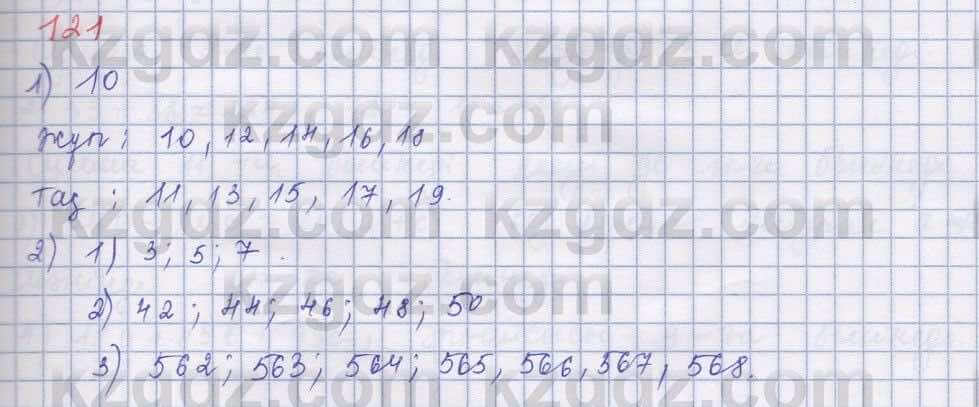 121
kzgdz.com kzgdz.com
1) 10
kzgdz.com
жуп: 10, 12, 14, 16, 18
kzgdz.com kzgdz.com
Тақ: 11, 13, 15, 17, 19.
kzgdz.com kzgdz.com
2) 1) 3; 5; 7.
kzgdz.com
2) 42; 44; 46; 48; 50
kzgdz.com kzgdz.com
3) 562; 563; 564; 565, 566, 567, 568.
kzgdz.com